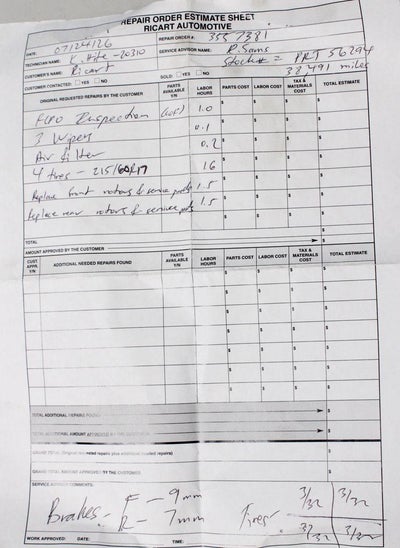 REPAIR ORDER ESTIMATE SHEET
RICART AUTOMOTIVE
DATE: 07/24/26 REPAIR ORDER #: 3557381
TECHNICIAN NAME: - 20310 SERVICE ADVISOR NAME: R. Sams
CUSTOMER'S NAME: Ricart Stock# = PRT 56294
CUSTOMER CONTACTED: YES NO SOLD: YES NO 38,491 miles
ORIGINAL REQUESTED REPAIRS BY THE CUSTOMER PARTS AVAILABLE Y/N LABOR HOURS PARTS COST LABOR COST TAX & MATERIALS COST TOTAL ESTIMATE
Inspection 1.0
3 Wipers 0.1
Air filter 0.2
4 tires - 215/60R17 16
Replace front rotors & service pads 1.5
Replace rear rotors & service pads 1.5
TOTAL
AMOUNT APPROVED BY THE CUSTOMER
CUST. APPR. Y/N ADDITIONAL NEEDED REPAIRS FOUND PARTS AVAILABLE Y/N LABOR HOURS PARTS COST LABOR COST TAX & MATERIALS COST TOTAL ESTIMATE
TOTAL ADDITIONAL REPAIRS FOUND
TOTAL ADDITIONAL AMOUNT APPROVED BY THE CUSTOMER
GRAND TOTAL (Original requested repairs plus additional needed repairs)
GRAND TOTAL AMOUNT APPROVED BY THE CUSTOMER
SERVICE ADVISOR COMMENTS:
Brakes - F - 9mm Tires 3/32 3/32
R - 7mm 3/32 3/32
WORK APPROVED: DATE: TIME: